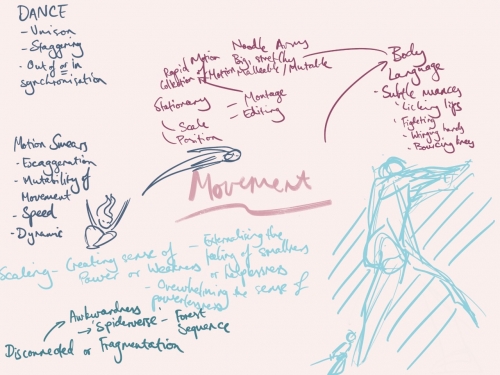 DANCE
- Unison
- Staggering
- Out of or in
synchronisation
Rapid Motion
Collection of Motion
Stationary
Scale
Position
Noodle Arms
Big, stretchy
Malleable / Mutable
- Montage
- Editing
Body
Language
- Subtle nuances
- Licking lips
- Fighting
- Wringing hands
- Bouncing knees
Motion Smears
- Exaggeration
- Mutability of
Movement
- Speed
- Dynamic
Movement
Scaling - Creating sense of
Power or Weakness
- Externalising the
feeling of smallness
or helplessness
- Overwhelming the sense of
powerlessness
Awkwardness
Spiderverse - Forest
Sequence
Disconnected or Fragmentation